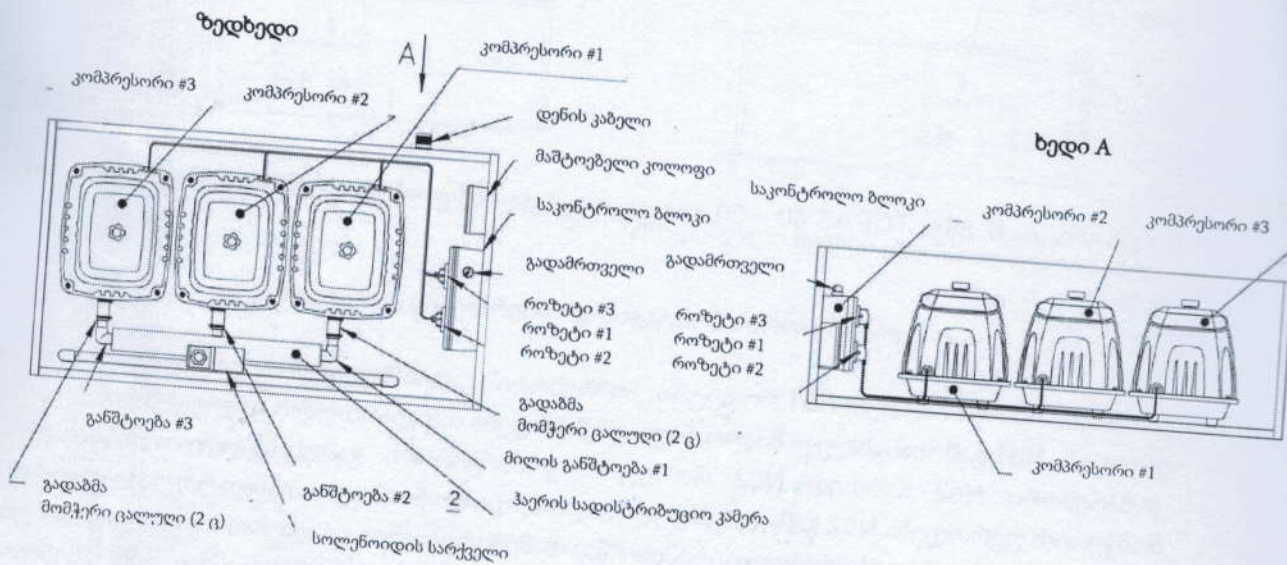 ზედხედი
A
კომპრესორი #1
კომპრესორი #3
კომპრესორი #2
დენის კაბელი
მაშტოებელი კოლოფი
საკონტროლო ბლოკი
გადამრთველი
როზეტი #3
როზეტი #1
როზეტი #2
გადაბმა
მომჭერი ცალუღი (2 ც)
მილის განშტოება #1
ჰაერის სადისტრიბუციო კამერა
2
განშტოება #3
გადაბმა
მომჭერი ცალუღი (2 ც)
განშტოება #2
სოლენოიდის სარქველი
ხედი A
საკონტროლო ბლოკი
კომპრესორი #2
კომპრესორი #3
გადამრთველი
როზეტი #3
როზეტი #1
როზეტი #2
კომპრესორი #1